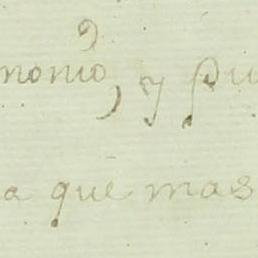 nonio, y pu
a que mas